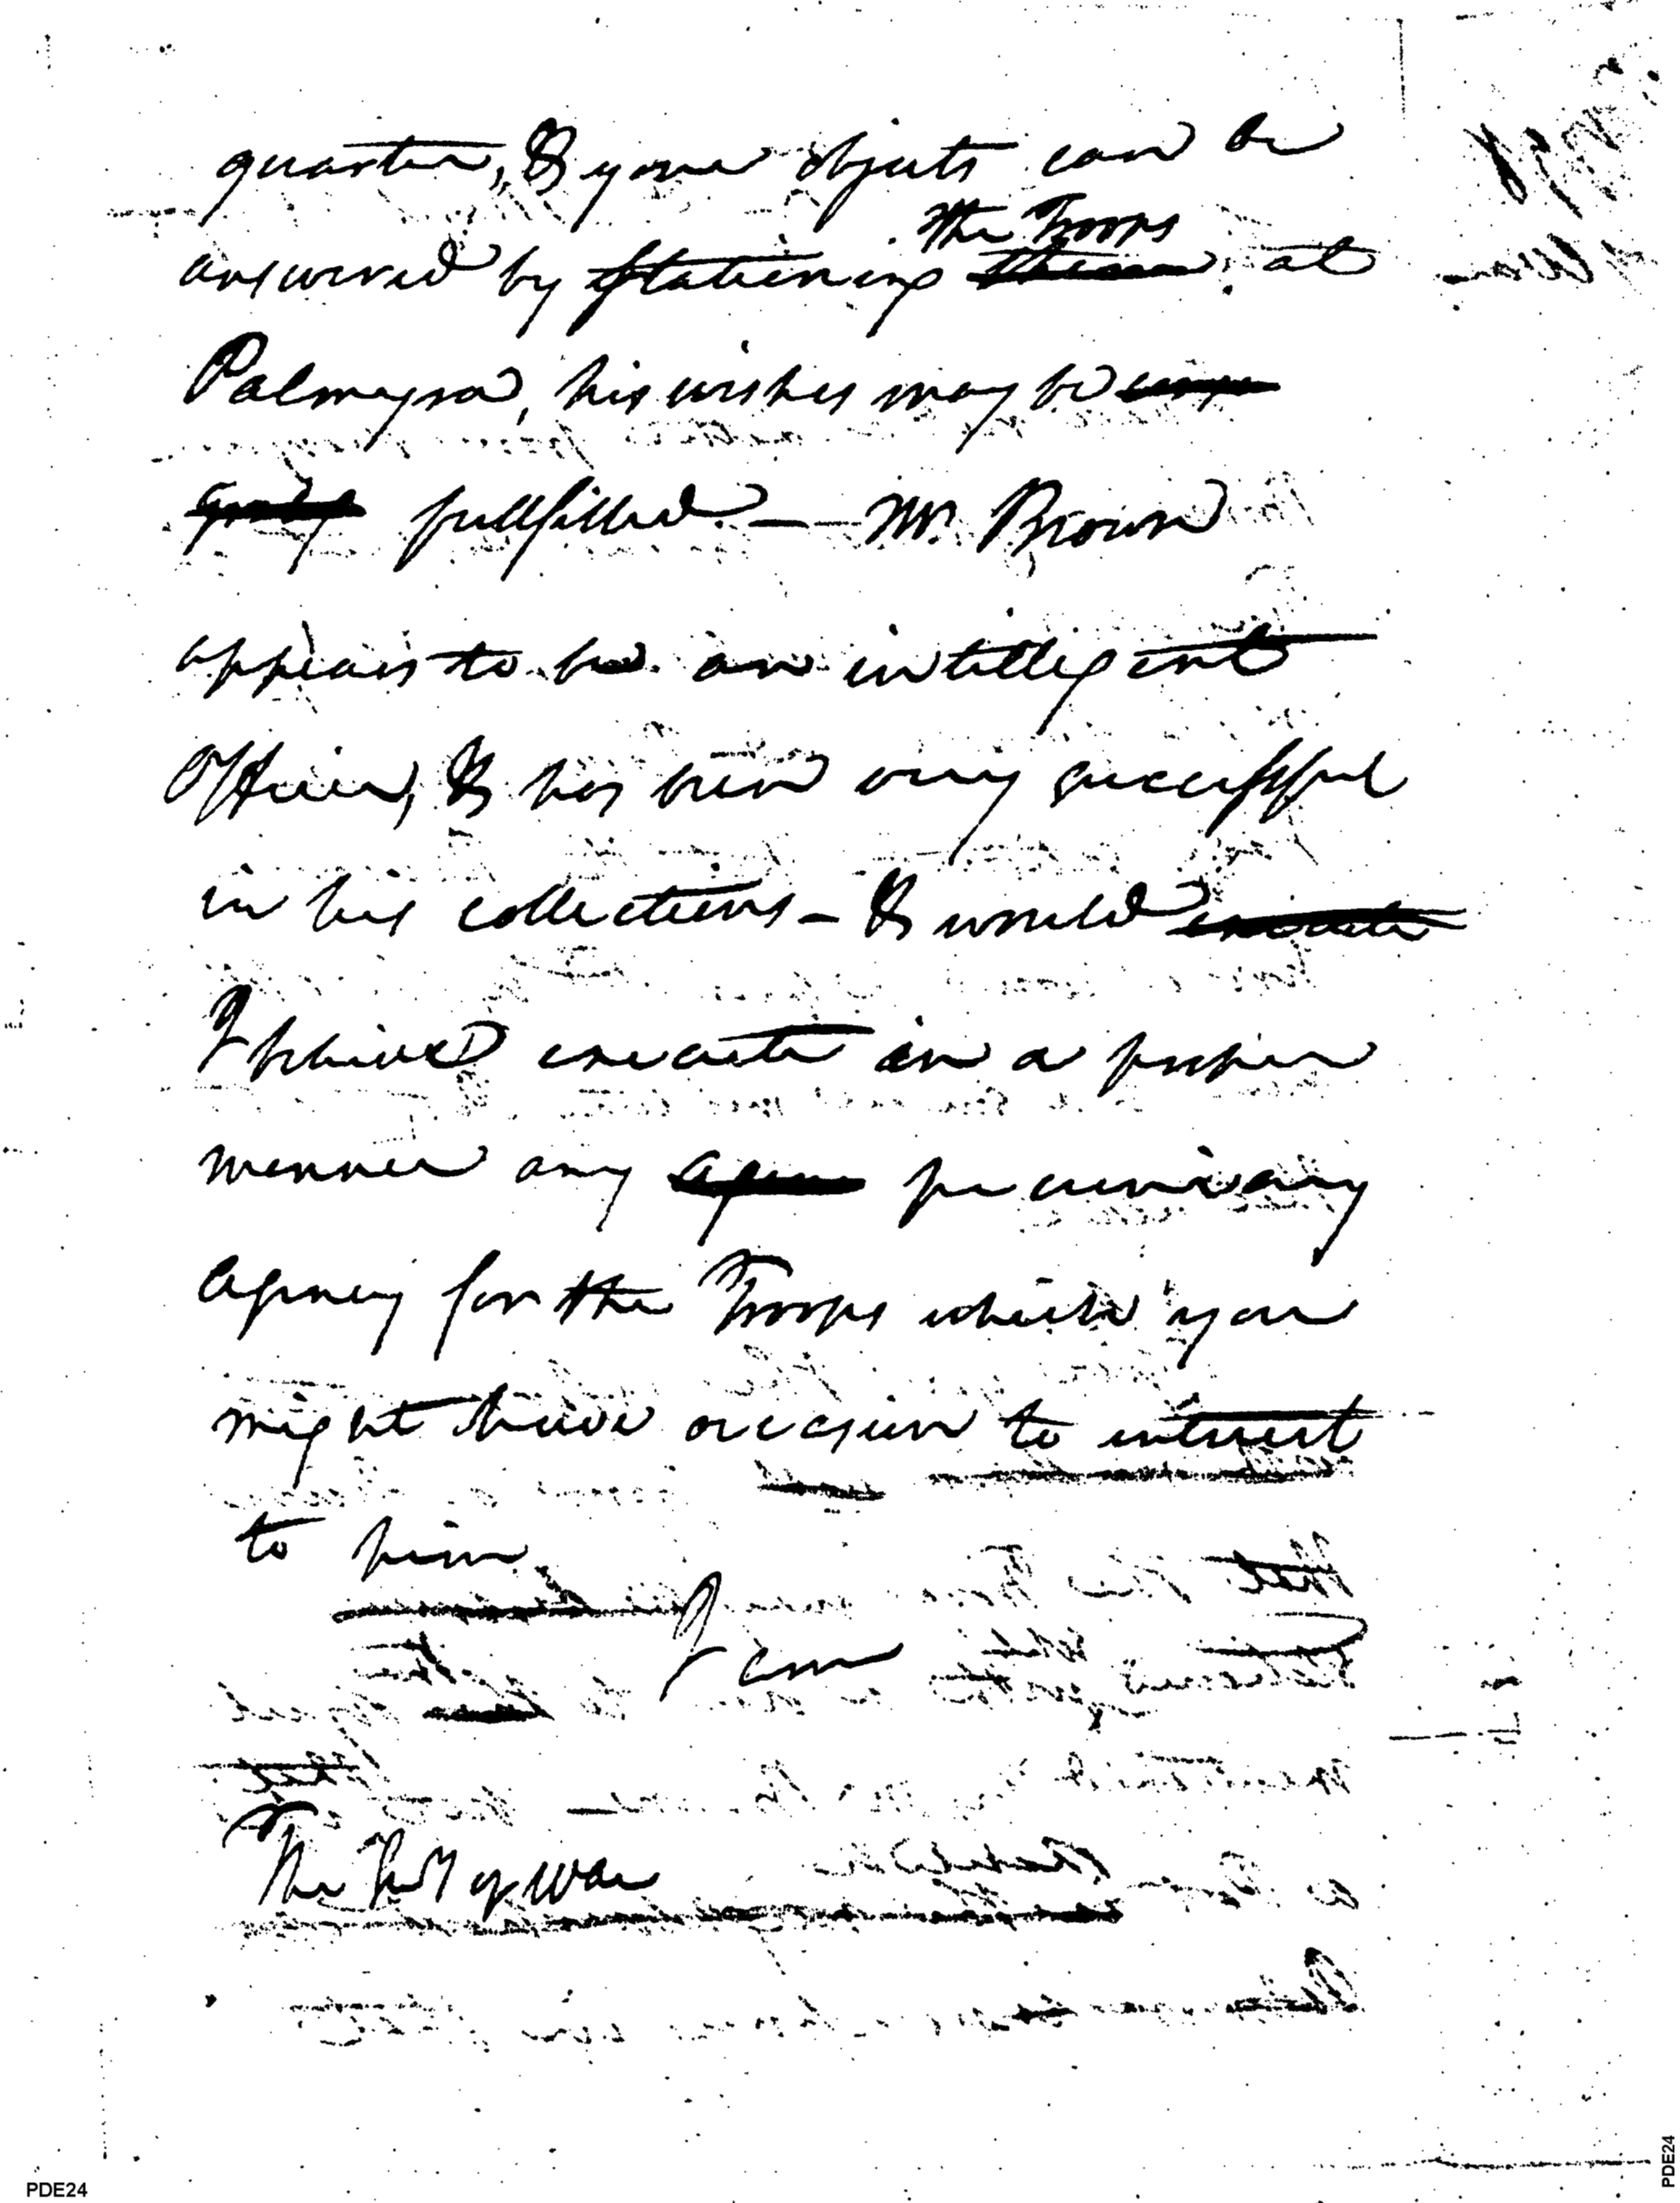 quarter, & your objects can be
the Troops
answered by stationing them at
Palmyra, his wishes may be
fullfilled. — Mr. Brown
appears to be an intelligent
Officer, & has been very successful
in his collections – & would execute
I believe execute in a proper
manner any agen pecuniary
agency for the Troops which you
might have occasion to intrust
to him.
I am
The Secy of War
PDE24
PDE24